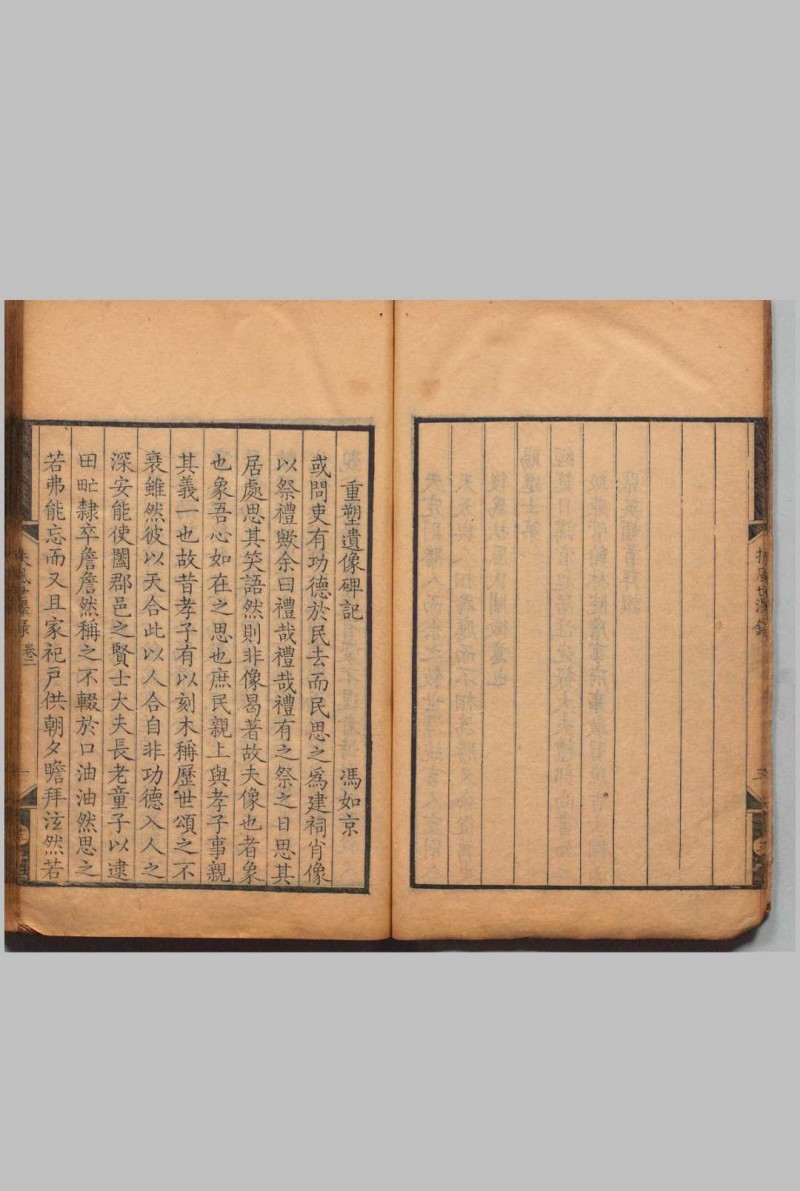 重塑遺像碑記 馮如京
或問吏有功德於民去而民思之爲建祠肖像
以祭禮歟余曰禮哉禮哉禮有之祭之日思其
居處思其笑語然則非像曷著故夫像也者象
也象吾心如在之思也庶民親上與孝子事親
其義一也故昔孝子有以刻木稱歷世頌之不
衰雖然彼以天合此以人合自非功德入人之
深安能使闔郡邑之賢士大夫長老童子以逮
田甿隸卒詹詹然稱之不輟於口油油然思之
若弗能忘而又且家祀戸供朝夕瞻拜泫然若
扶風世澤錄 卷二 一